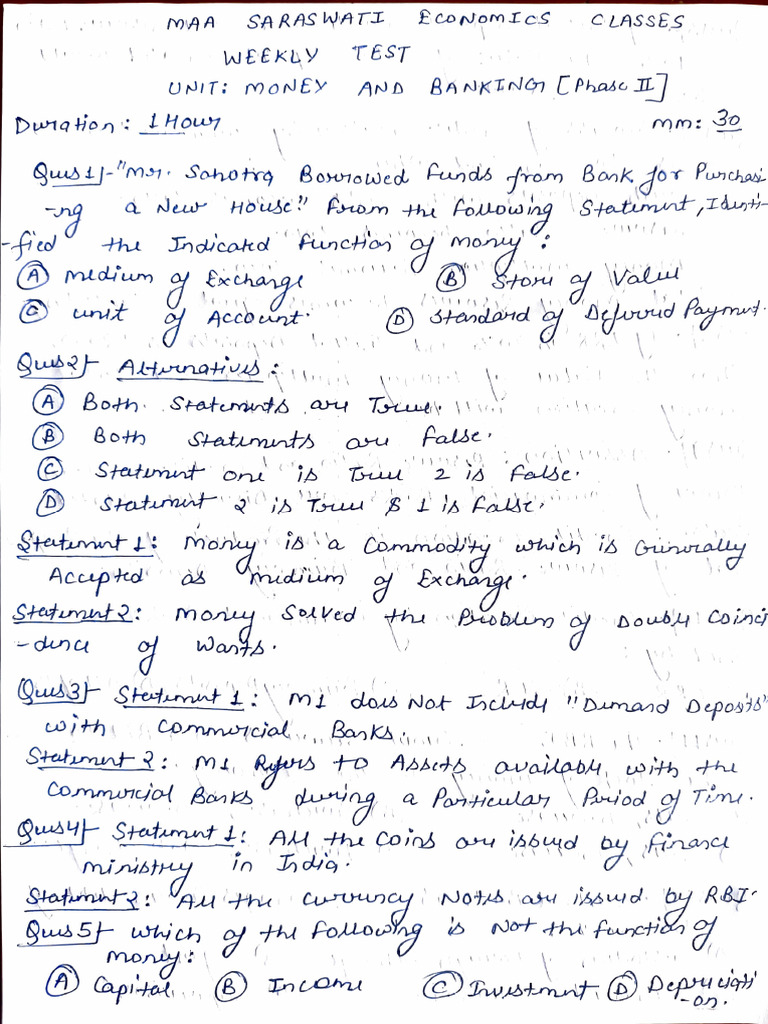 MAA SARASWATI ECONOMICS CLASSES
WEEKLY TEST
UNIT: MONEY AND BANKING [Phase II]
Duration: 1 Hour MM: 30
Ques1)- "Mr. Sahotra Borrowed Funds from Bank for Purchasi
-ng a New House." From the Following Statement, Identi-
-fied the Indicated Function of money:
(A) Medium of Exchange (B) Store of Value
(C) Unit of Account. (D) Standard of Deferred Payment.
Ques2)- Alternatives:
(A) Both Statements are True.
(B) Both Statements are False.
(C) Statement one is True 2 is False.
(D) Statement 2 is True & 1 is False.
Statement 1: Money is a Commodity which is Generally
Accepted as medium of Exchange.
Statement 2: Money Solved the Problem of Double Coinci
-dence of Wants.
Ques3)- Statement 1: M1 does Not Include "Demand Deposits"
with Commercial Banks.
Statement 2: M1 Refers to Assets available with the
Commercial Banks during a Particular Period of Time.
Ques4)- Statement 1: All the Coins are issued by Finance
ministry in India.
Statement 2: All the Currency Notes are issued by RBI.
Ques5)- Which of the Following is Not the function of
money:
(A) Capital (B) Income (C) Investment (D) Depreciati
-on.